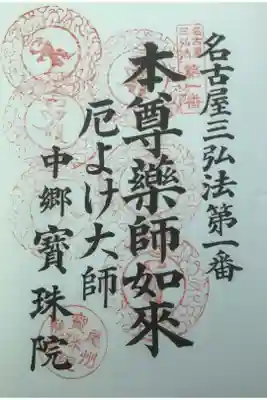 名古屋三弘法第一番
本尊藥師如來
厄よけ大師
中郷 寶珠院
名古屋
三弘法
第一番